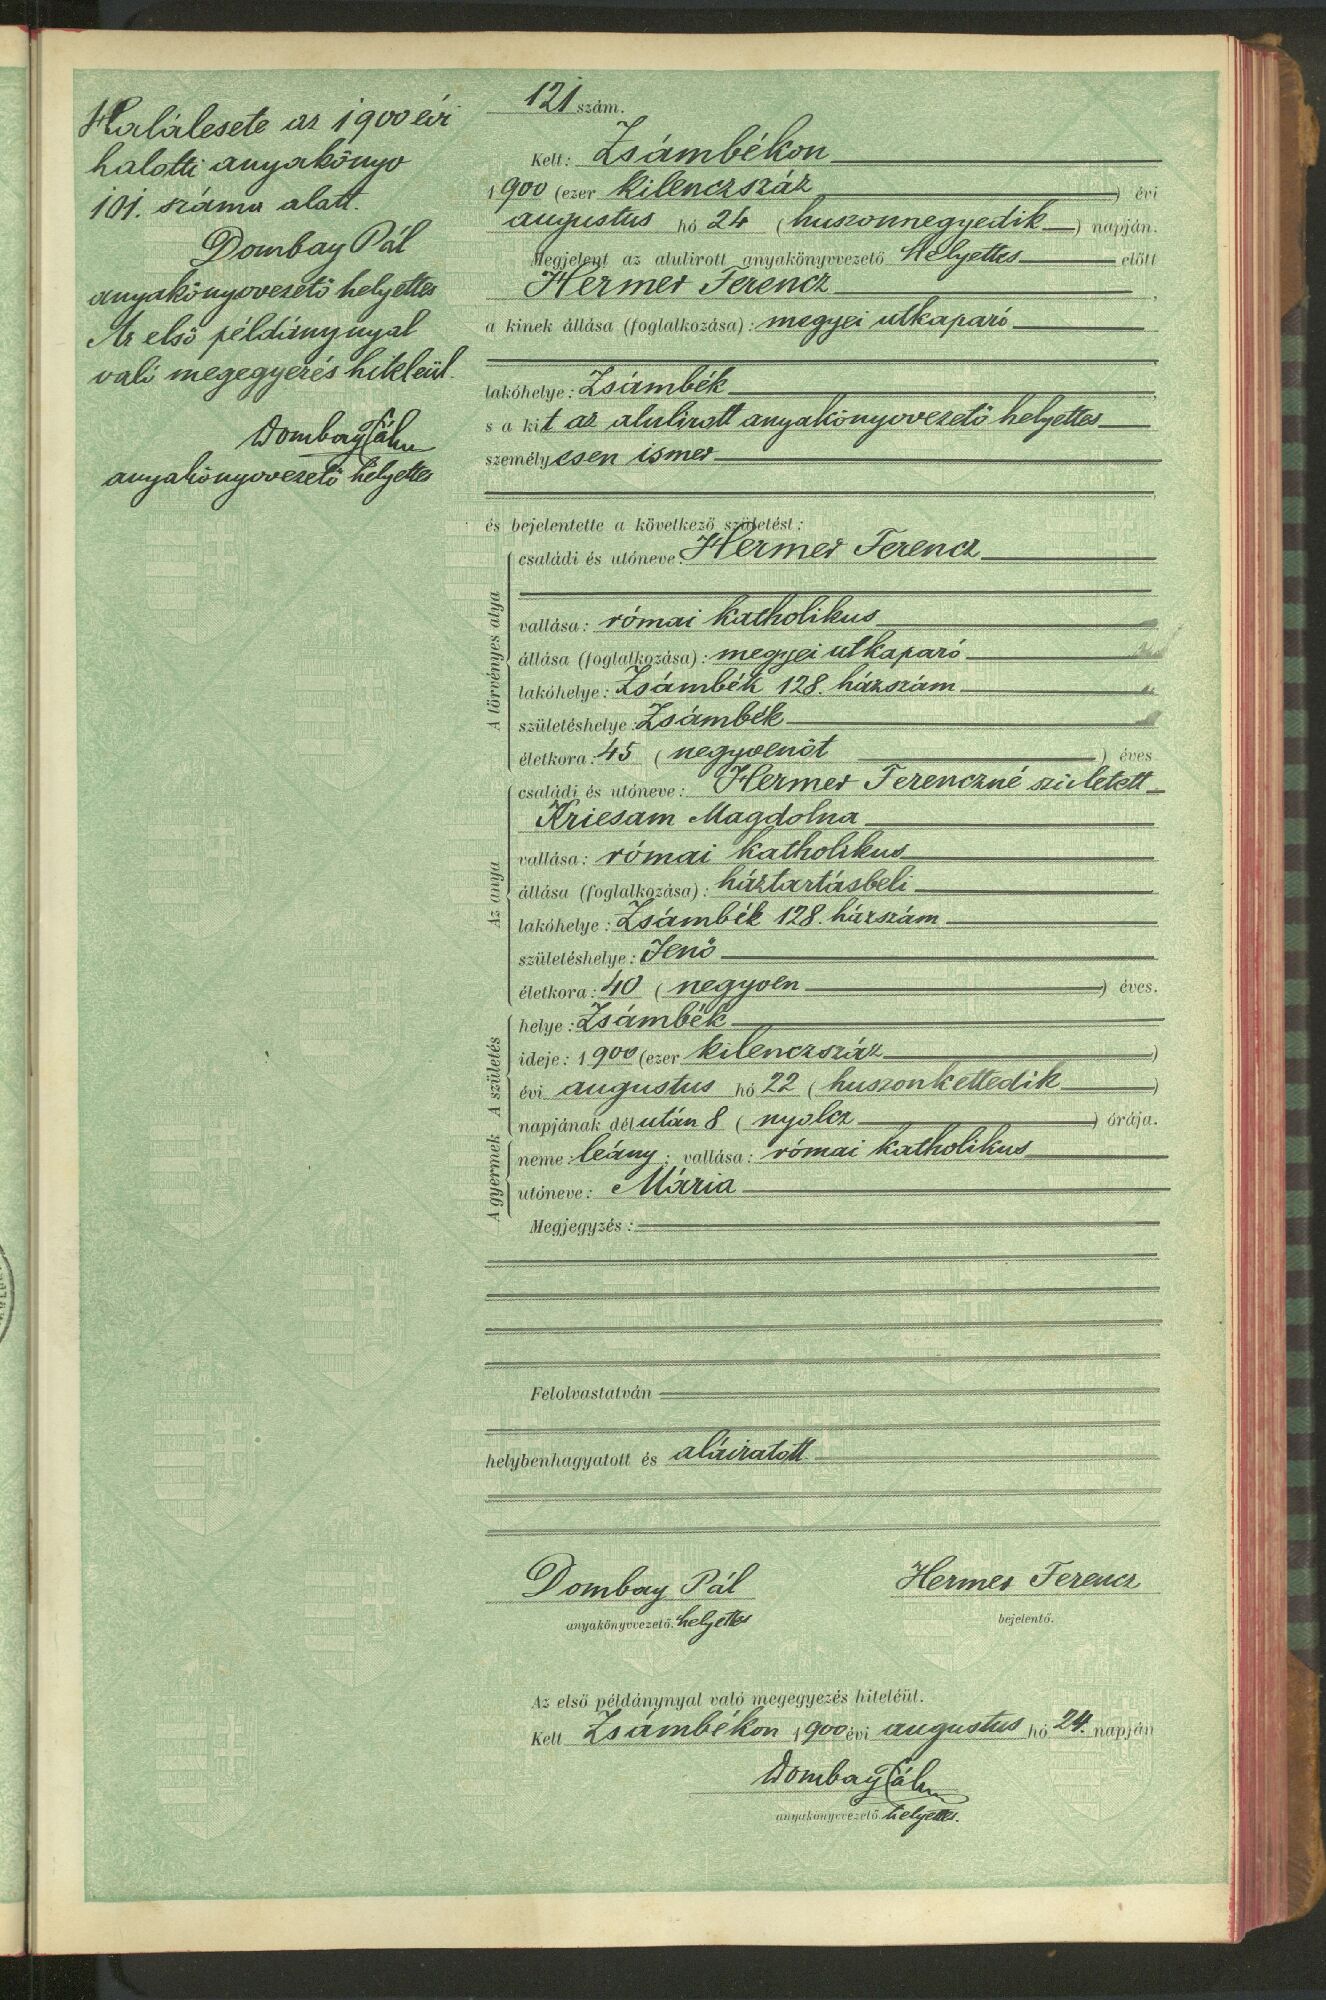 Halálesete az 1900 évi
halotti anyakönyv
101. száma alatt.
Dombay Pál
anyakönyvvezető helyettes
Az első példánynyal
való megegyezés hiteléül.
Dombay Pál
anyakönyvvezető helyettes
121 szám.
Kelt: Zsámbékon
1900 (ezer kilenczszáz) évi
augustus hó 24 (huszonnegyedik) napján.
Megjelent az alulirott anyakönyvvezető helyettes előtt
Hermer Ferencz,
a kinek állása (foglalkozása): megyei utkaparó
lakóhelye: Zsámbék,
s a kit az alulirott anyakönyvvezető helyettes
személyesen ismer
és bejelentette a következő születést:
A törvényes atya
családi és utóneve: Hermer Ferencz
vallása: római katholikus
állása (foglalkozása): megyei utkaparó
lakóhelye: Zsámbék 128. házszám
születéshelye: Zsámbék
életkora: 45 (negyvenöt) éves
Az anya
családi és utóneve: Hermer Ferenczné született
Kriesam Magdolna
vallása: római katholikus
állása (foglalkozása): háztartásbeli
lakóhelye: Zsámbék 128. házszám
születéshelye: Jenő
életkora: 40 (negyven) éves.
A születés
helye: Zsámbék
ideje: 1900 (ezer kilenczszáz)
évi augustus hó 22 (huszonkettedik)
napjának délután 8 (nyolcz) órája.
A gyermek
neme: leány; vallása: római katholikus
utóneve: Mária
Megjegyzés:
Felolvastatván
helybenhagyatott és aláiratott
Dombay Pál Hermer Ferencz
anyakönyvvezető. helyettes bejelentő.
Az első példánynyal való megegyezés hiteléül.
Kelt Zsámbékon 1900 évi augustus hó 24. napján
Dombay Pál
anyakönyvvezető helyettes.